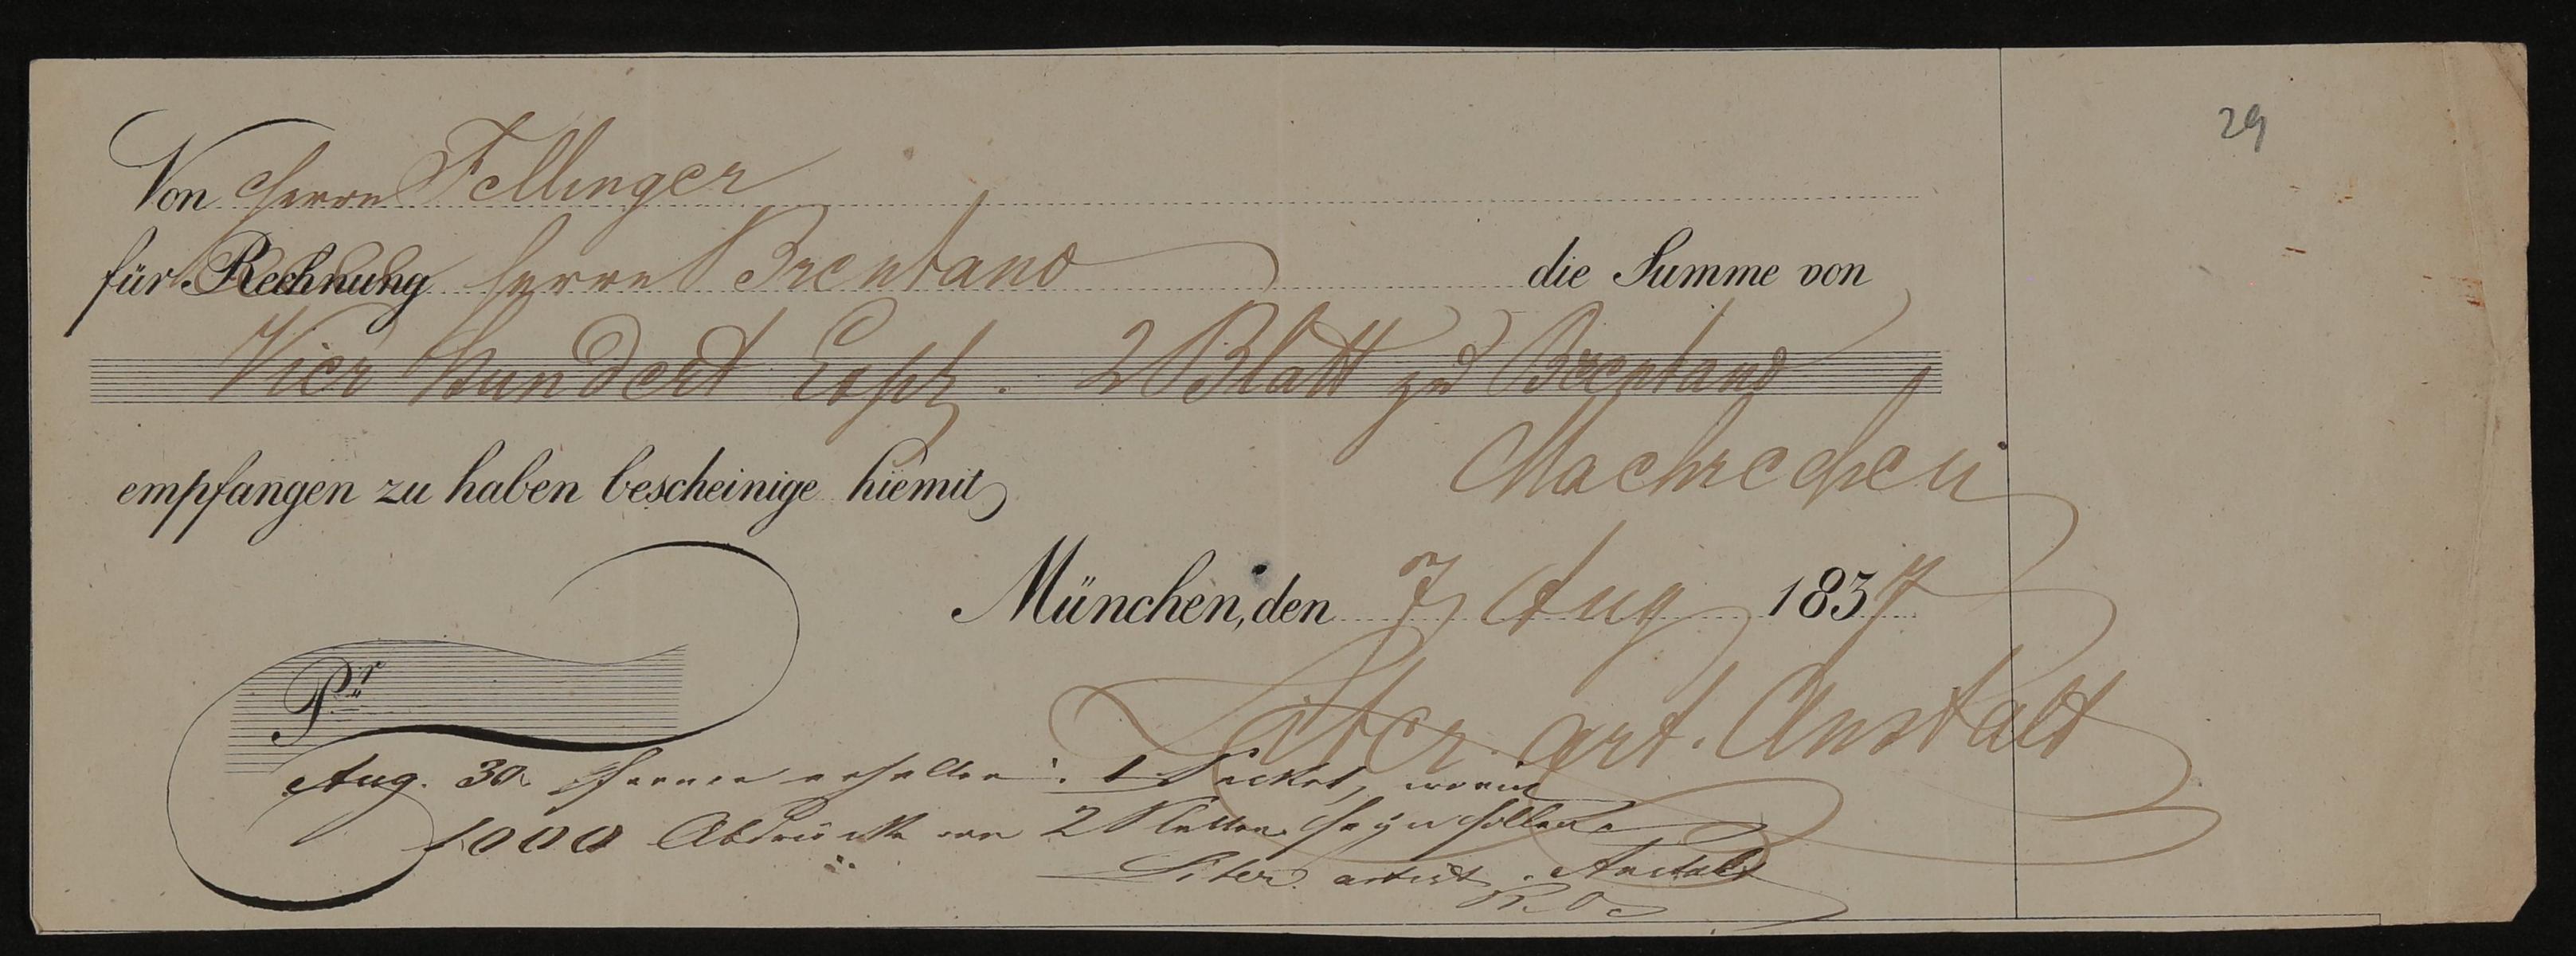 29
Von Herrn Fellinger
für Rechnung Herrn Brentano die Summe von
Vier hundert Expl. 2 Blatt zu Brentano
Maehrchen
empfangen zu haben bescheinige hiemit
München, den 7 Aug 1837
Pr
Liter. art. Anstalt
Aug. 30. Ferner erhalten: 1 Packet, worin
1000 Abdrücke von 2 Platten seyn sollen.
Liter. artist. Anstalt